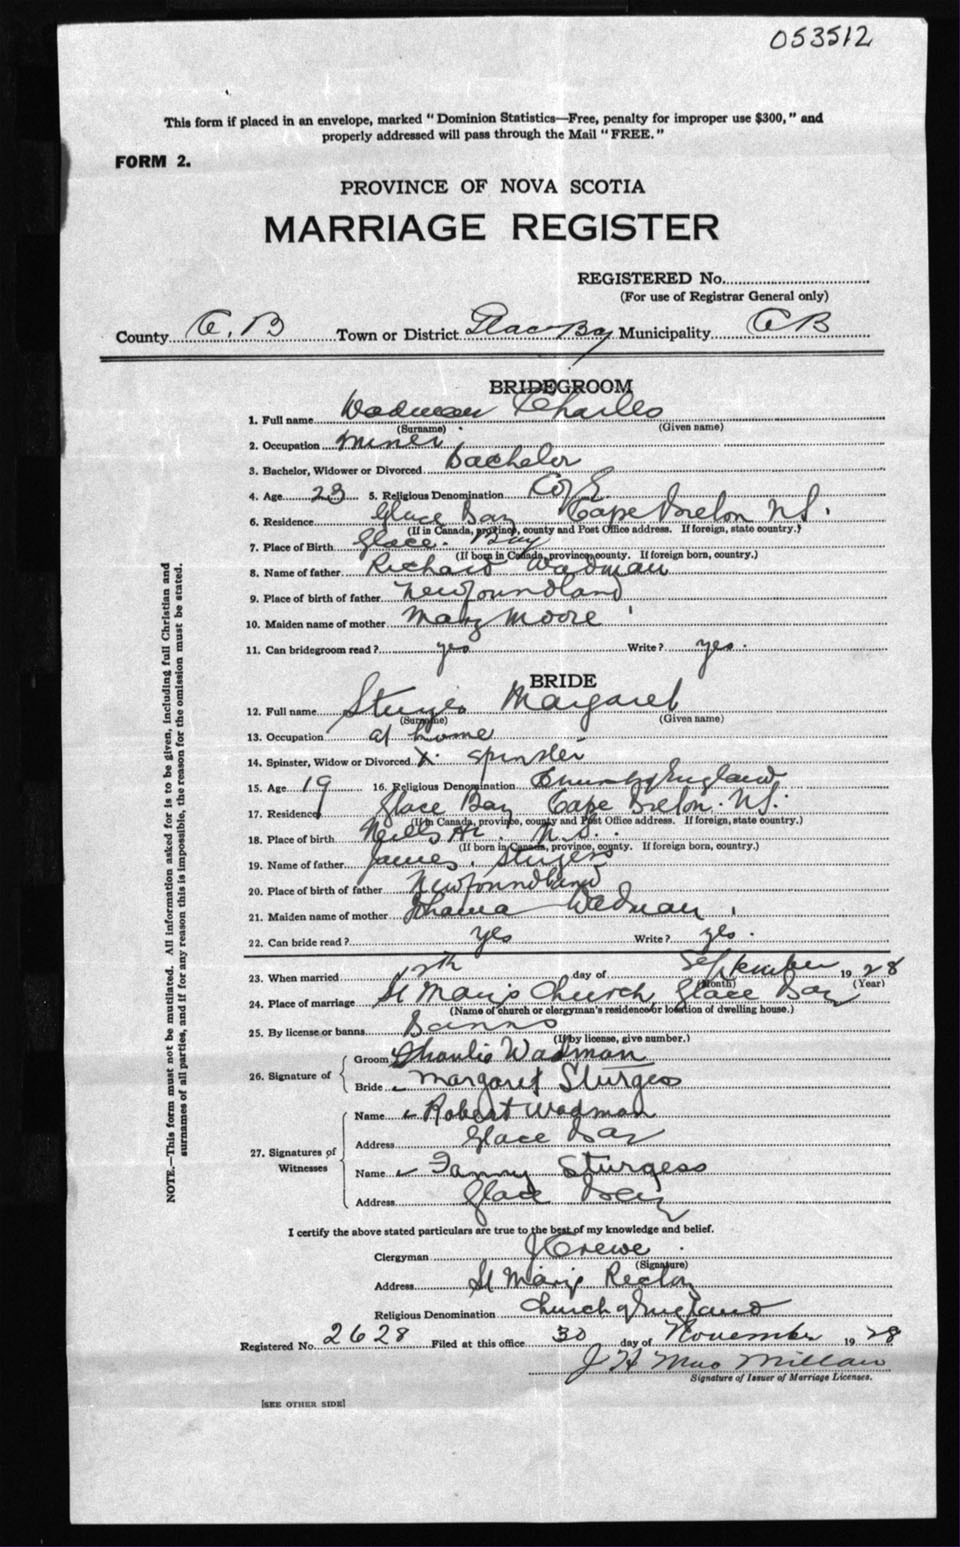 053512
This form if placed in an envelope, marked "Dominion Statistics—Free, penalty for improper use $300," and
properly addressed will pass through the Mail "FREE."
FORM 2.
PROVINCE OF NOVA SCOTIA
MARRIAGE REGISTER
REGISTERED No.
(For use of Registrar General only)
County C. B Town or District Glace Bay Municipality CB
BRIDEGROOM
1. Full name Wadman Charles
(Surname) (Given name)
2. Occupation miner
3. Bachelor, Widower or Divorced bachelor
4. Age 23 5. Religious Denomination C of E
6. Residence Glace Bay Cape Breton N.S.
(If in Canada, province, county and Post Office address. If foreign, state country.)
7. Place of Birth Glace Bay
(If born in Canada, province, county. If foreign born, country.)
8. Name of father Richard Wadman
9. Place of birth of father Newfoundland
10. Maiden name of mother Mary Moore
11. Can bridegroom read? yes Write? yes.
BRIDE
12. Full name Margaret
(Surname) (Given name)
13. Occupation at home
14. Spinster, Widow or Divorced X. spinster
15. Age 19 16. Religious Denomination Church of England
17. Residence Glace Bay Cape Breton. N.S.
(If in Canada, province, county and Post Office address. If foreign, state country.)
18. Place of birth N.S.
(If born in Canada, province, county. If foreign born, country.)
19. Name of father James Sturgess
20. Place of birth of father Newfoundland
21. Maiden name of mother Wadman
22. Can bride read? yes Write? yes.
23. When married 12th day of September 1928
(Month) (Year)
24. Place of marriage St Mary's Church, Glace Bay
(Name of church or clergyman's residence or location of dwelling house.)
25. By license or banns Banns
(If by license, give number.)
26. Signature of
Groom Charlie Wadman
Bride Margaret Sturgess
27. Signatures of Witnesses
Name Robert Wadman
Address Glace Bay
Name Fanny Sturgess
Address Glace Bay
I certify the above stated particulars are true to the best of my knowledge and belief.
Clergyman J Crewe
(Signature)
Address St Mary's Rectory
Religious Denomination Church of England
Registered No. 2628 Filed at this office 30 day of November 1928
J H MacMillan
Signature of Issuer of Marriage Licenses.
[SEE OTHER SIDE]
NOTE.—This form must not be mutilated. All information asked for is to be given, including full Christian and
surnames of all parties, and if for any reason this is impossible, the reason for the omission must be stated.